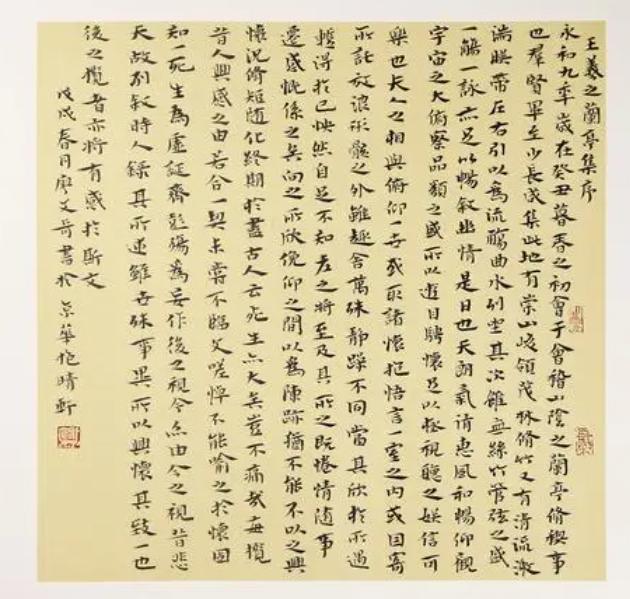 王羲之蘭亭集序
永和九年歲在癸丑暮春之初會于會稽山陰之蘭亭脩稧事
也羣賢畢至少長咸集此地有崇山峻領茂林脩竹又有清流激
湍暎帶左右引以為流觴曲水列坐其次雖無絲竹管弦之盛
一觴一詠亦足以暢敘幽情是日也天朗氣清惠風和暢仰觀
宇宙之大俯察品類之盛所以遊目騁懷足以極視聽之娛信可
樂也夫人之相與俯仰一世或取諸懷抱悟言一室之內或因寄
所託放浪形骸之外雖趣舍萬殊靜躁不同當其欣於所遇
蹔得於己怏然自足不知老之將至及其所之既惓情隨事
遷感慨係之矣向之所欣俛仰之間以為陳跡猶不能不以之興
懷況脩短隨化終期於盡古人云死生亦大矣豈不痛哉每攬
昔人興感之由若合一契未嘗不臨文嗟悼不能喻之於懷固
知一死生為虛誕齊彭殤為妄作後之視今亦由今之視昔悲
夫故列敘時人錄其所述雖世殊事異所以興懷其致一也
後之攬者亦將有感於斯文
戊戌春月廖文書於京華晴軒